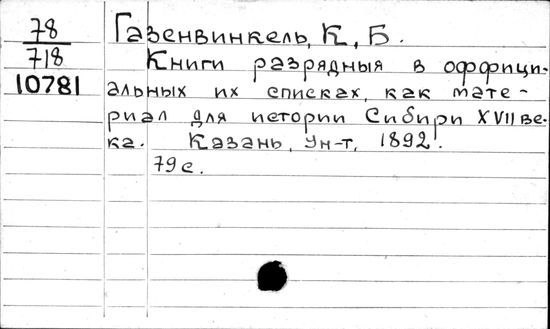 78
718
10781
Газенвинкель, К, Б.
Книги разрядныя в оффици-
альных их списках, как мате-
риал для истории Сибири XVII ве-
ка. Казань, Ун-т, 1892.
79 с.